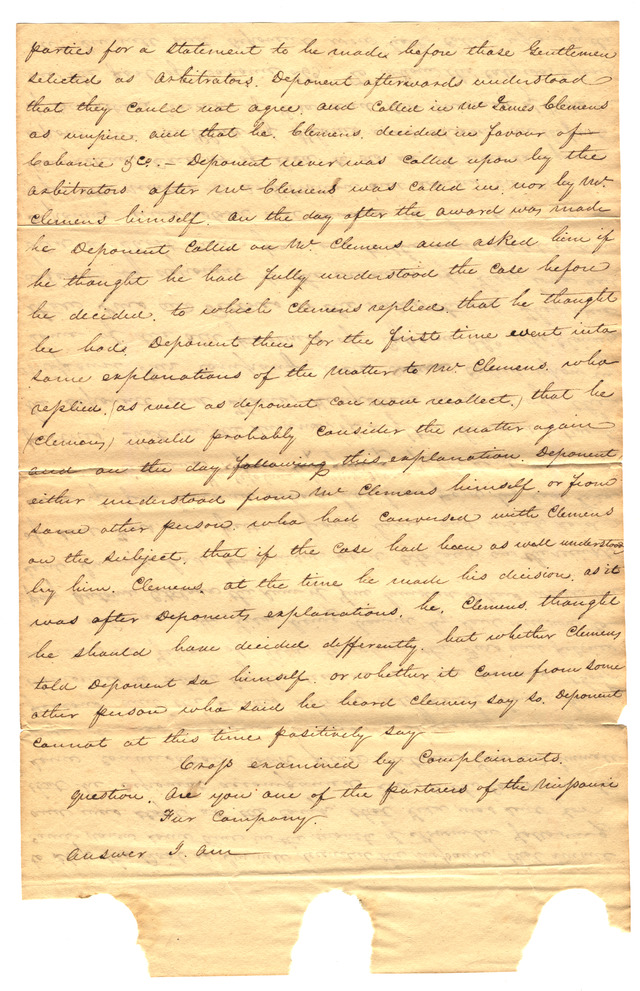 parties for a statement to be made before those Gentlemen
selected as arbitrators. Deponent afterwards understood
that they could not agree. and called in Mr James Clemens
as umpire. and that he. Clemens. decided in favour of
Cabanie &Co. – Deponent never was called upon by the
arbitrators after Mr Clemens was called in, nor by Mr.
Clemens himself. on the day after the award was made
he Deponent called on Mr. Clemens and asked him if
he thought he had fully understood the case before
he decided. to which Clemens replied. that he thought
he had. Deponent then for the first time event into
some explanations of the matter to Mr Clemens. who
replied. (as well as deponent can now recollect.) that he
(Clemens) would probably consider the matter again
and on the day following this explanation. Deponent
either understood from Mr Clemens himself. or from
some other person. who had conversed with Clemens
on the subject. that if the case had been as well understood
by him. Clemens. at the time he made his decision. as it
was after Deponents explanations. he. Clemens. thought
he should have decided differently. but whether Clemens
told Deponent so himself. or whether it came from some
other person who said he heard Clemens say so. Deponent
cannot at this time positively say
Cross examined by Complainants.
question. Are you one of the partners of the Missouri
Fur Company.
answer I. am